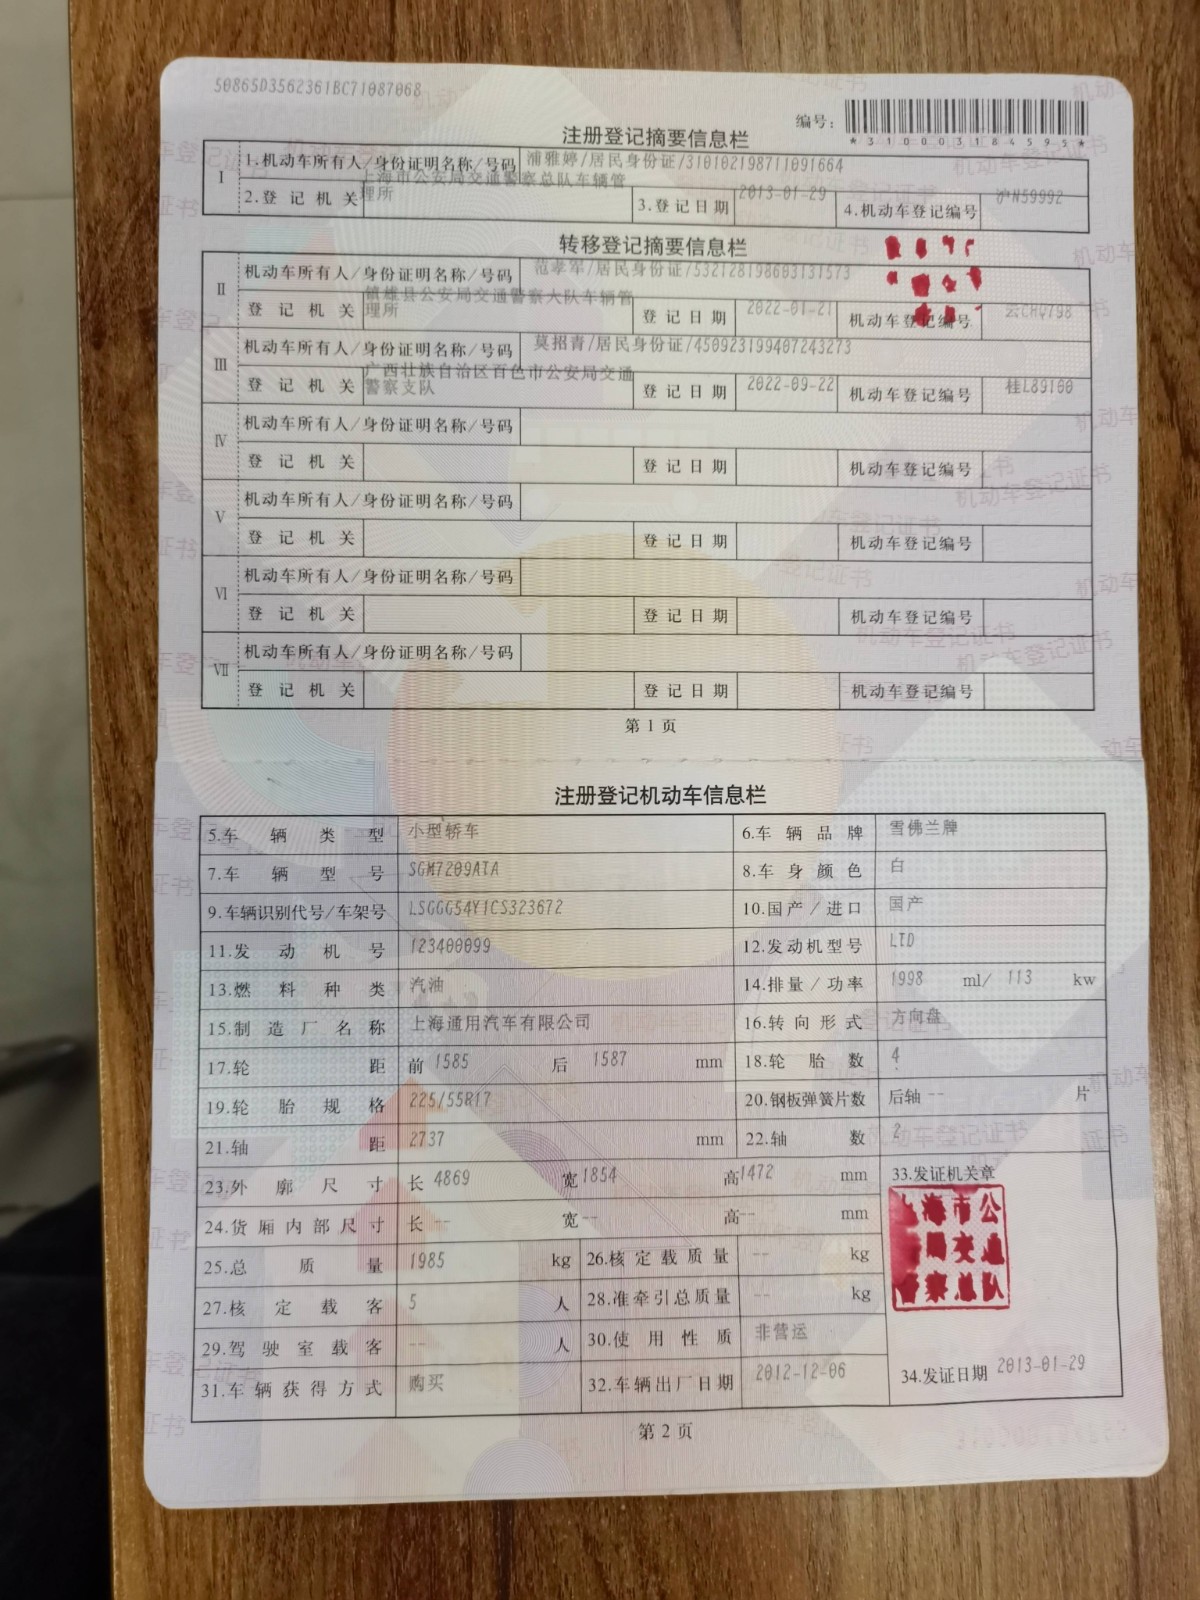 50865D3562361BC71087068
编号：
*310003184595*
注册登记摘要信息栏
I
1.机动车所有人/身份证明名称/号码 浦雅婷/居民身份证/310102198711091664
2.登记机关 上海市公安局交通警察总队车辆管理所 3.登记日期 2013-01-29 4.机动车登记编号 沪N59992
转移登记摘要信息栏
II
机动车所有人/身份证明名称/号码 范孝军/居民身份证/532128198603131573
登记机关 镇雄县公安局交通警察大队车辆管理所 登记日期 2022-01-21 机动车登记编号 云CHQ798
III
机动车所有人/身份证明名称/号码 莫招青/居民身份证/450923199407243273
登记机关 广西壮族自治区百色市公安局交通警察支队 登记日期 2022-09-22 机动车登记编号 桂L89100
IV
机动车所有人/身份证明名称/号码
登记机关 登记日期 机动车登记编号
V
机动车所有人/身份证明名称/号码
登记机关 登记日期 机动车登记编号
VI
机动车所有人/身份证明名称/号码
登记机关 登记日期 机动车登记编号
VII
机动车所有人/身份证明名称/号码
登记机关 登记日期 机动车登记编号
第1页
注册登记机动车信息栏
5.车辆类型 小型轿车 6.车辆品牌 雪佛兰牌
7.车辆型号 SGM7209ATA 8.车身颜色 白
9.车辆识别代号/车架号 LSGGG54Y1CS323672 10.国产/进口 国产
11.发动机号 123400099 12.发动机型号 LTD
13.燃料种类 汽油 14.排量/功率 1998 ml/ 113 kw
15.制造厂名称 上海通用汽车有限公司 16.转向形式 方向盘
17.轮距 前 1585 后 1587 mm 18.轮胎数 4
19.轮胎规格 225/55R17 20.钢板弹簧片数 后轴 -- 片
21.轴距 2737 mm 22.轴数 2
23.外廓尺寸 长 4869 宽 1854 高 1472 mm 33.发证机关章
24.货厢内部尺寸 长 -- 宽 -- 高 -- mm
25.总质量 1985 kg 26.核定载质量 -- kg
27.核定载客 5 人 28.准牵引总质量 -- kg
29.驾驶室载客 -- 人 30.使用性质 非营运
31.车辆获得方式 购买 32.车辆出厂日期 2012-12-06 34.发证日期 2013-01-29
上海市公
局交通
警察总队
第2页